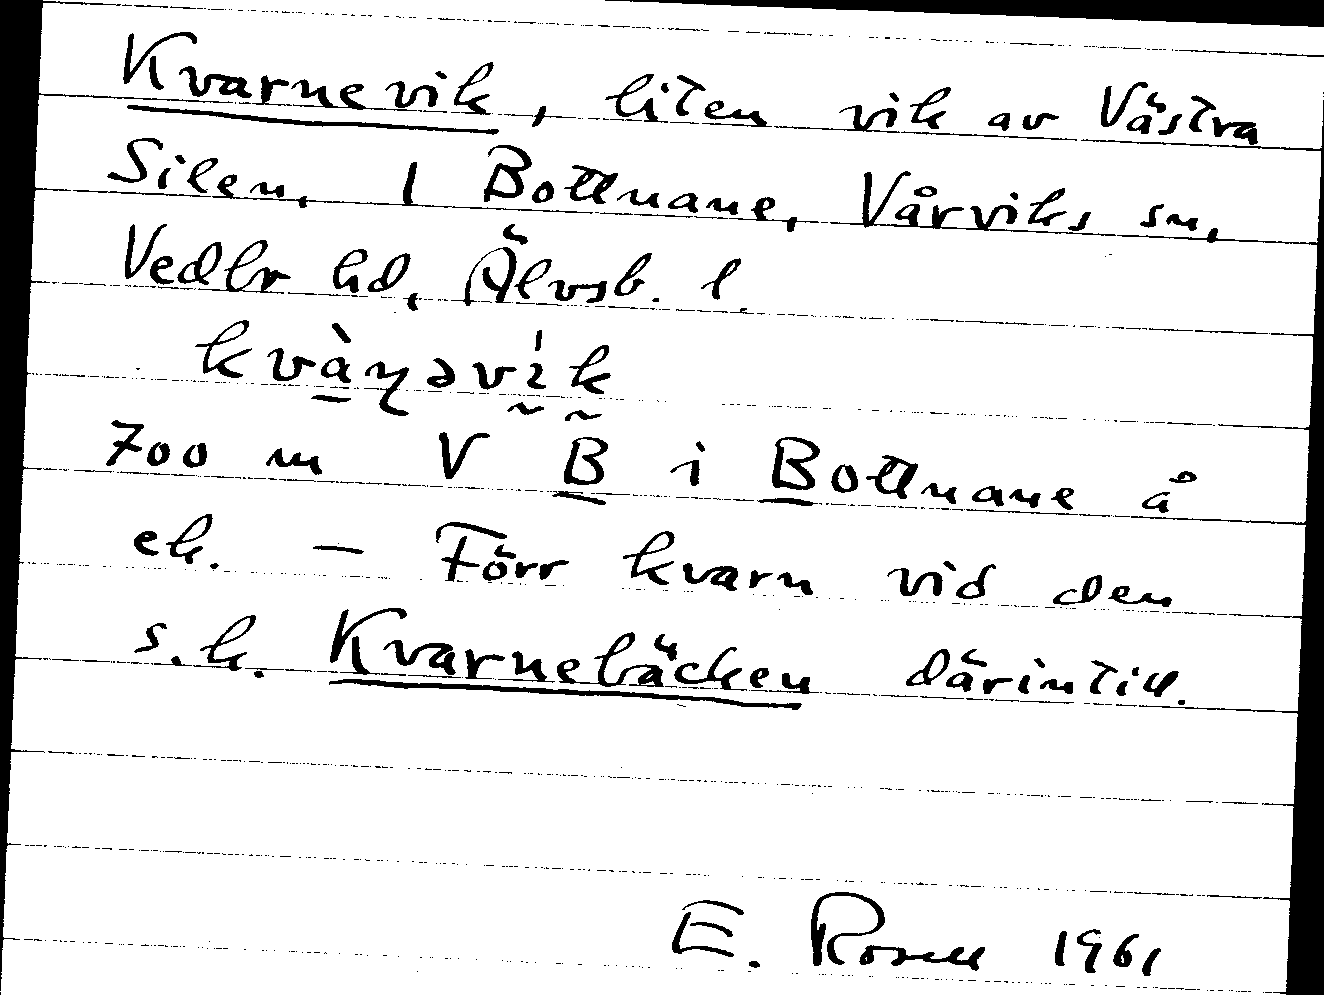 Kvarnevik, liten vik av Västra
Silen, 1 Bottnane, Vårviks sn,
Vedbr hd, Älvsb. l.
kvàɳəvík
700 m V B i Bottnane å
ek. — Förr kvarn vid den
s.k. Kvarnebäcken därintill.
E. Rosell 1961